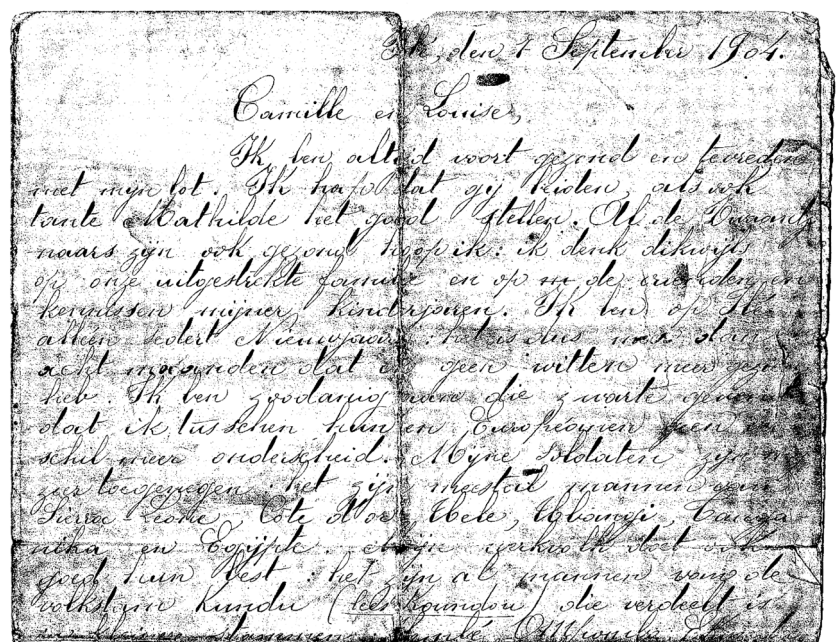 den 7 September 1904.
Camille en Louise,
Ik ben altijd voort gezond en tevreden
met mijn lot. Ik hoop dat gij beiden, als ook
tante Mathilde het goed stellen. Al de
naars zijn ook gezond hoop ik: ik denk dikwijls
op onze uitgestrekte familie en op de vrienden en
kennissen mijner kinderjaren. Ik ben op
alleen sedert Nieuwjaar: het is dus meer dan
acht maanden dat ik geen witten meer gezien
heb. Ik ben zoodanig aan die zwarte gewoon
dat ik tusschen hun en Europeanen geen
schil meer onderscheid. Mijne soldaten zijn
zeer toegenegen: het zijn meestal mannen van
Sierra-Leone, Côte d'or, Uele, Ubangi,
en Egypte. Mijn werkvolk doet ook
goed hun best: het zijn al mannen van de
volkstam Kundu (lees Koundou) die verdeeld is
in kleine stammen